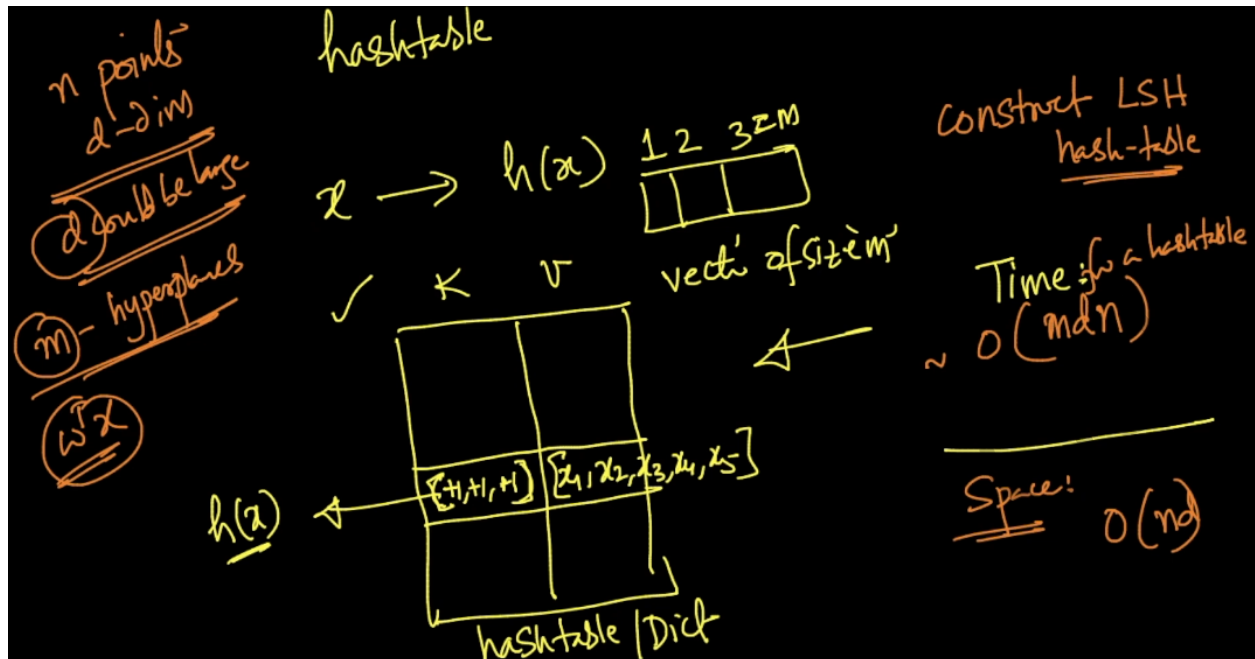 hashtable
n points
d-dim
d could be large
m - hyperplanes
wᵀx
x → h(x)
1 2 3=m
vector of size 'm'
✓ K V
[+1,+1,+1] [x₁, x₂, x₃, x₄, x₅]
h(x)
hashtable / Dict
construct LSH
hash-table
Time: for a hashtable
~ O(mdn)
Space:
O(nd)